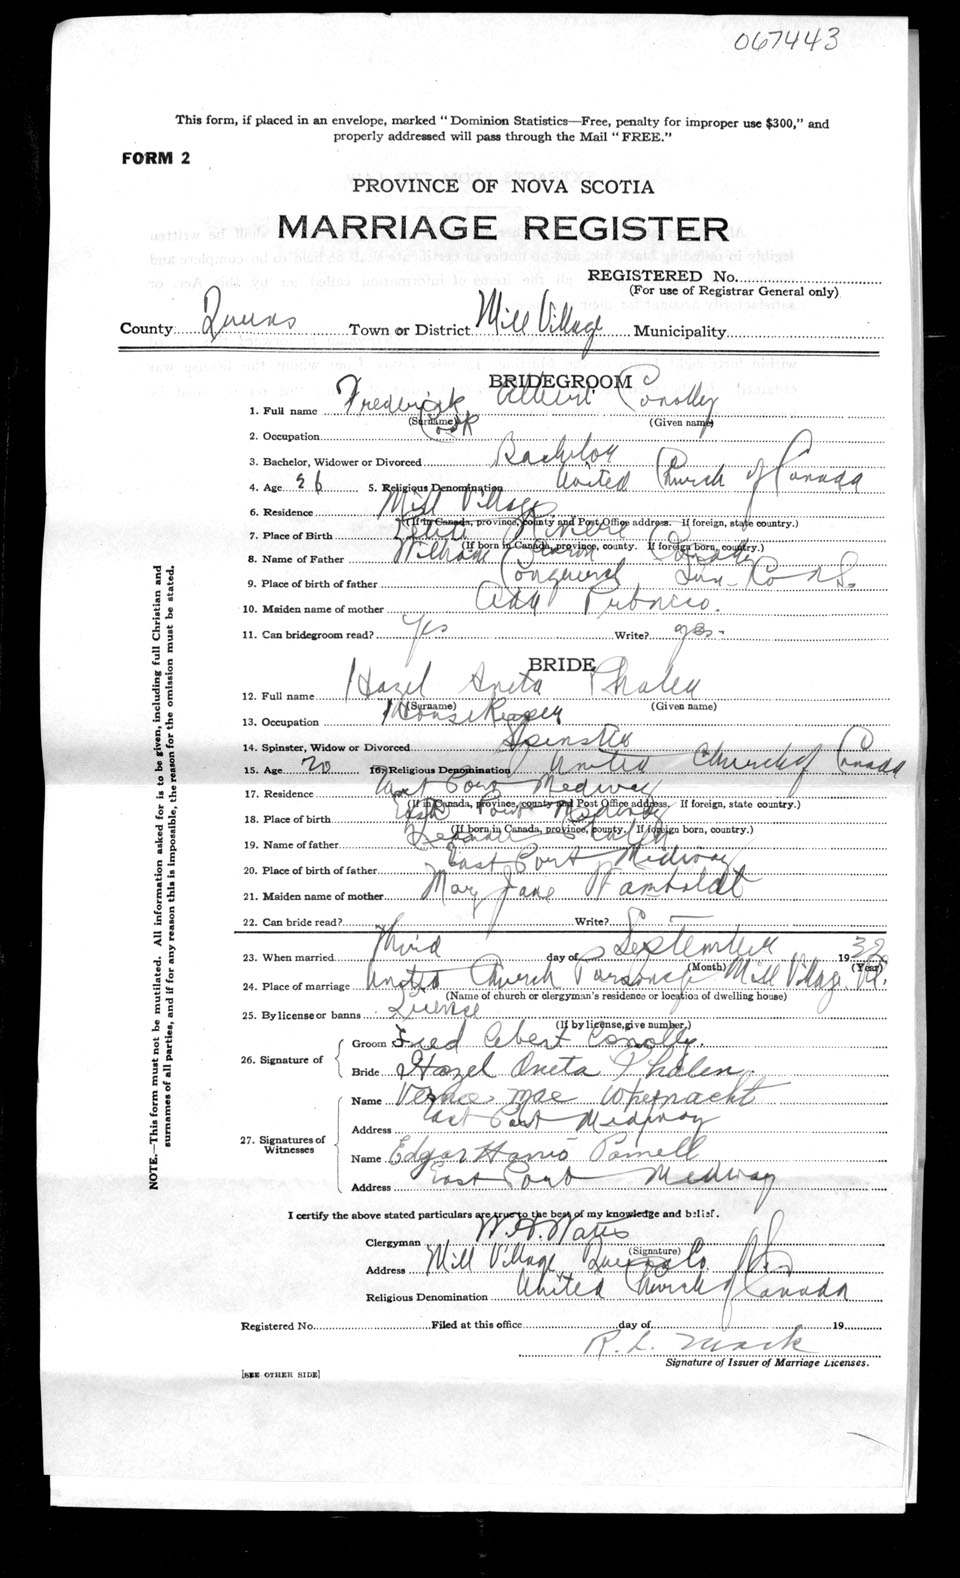 067443
This form, if placed in an envelope, marked "Dominion Statistics—Free, penalty for improper use $300," and
properly addressed will pass through the Mail "FREE."
FORM 2
PROVINCE OF NOVA SCOTIA
MARRIAGE REGISTER
REGISTERED No.
(For use of Registrar General only)
County Queens Town or District Mill Village Municipality
BRIDEGROOM
1. Full name Frederick Albert Conolly
(Surname) (Given name)
2. Occupation Cook
3. Bachelor, Widower or Divorced Bachelor
4. Age 26 5. Religious Denomination United Church of Canada
6. Residence Mill Village
(If in Canada, province, county and Post Office address. If foreign, state country.)
7. Place of Birth Petite Riviere
(If born in Canada, province, county. If foreign born, country.)
8. Name of Father William Conolly
9. Place of birth of father Conquerall Lun. Co N.S.
10. Maiden name of mother Ada
11. Can bridegroom read? Yes Write? yes.
BRIDE
12. Full name Hazel Aneta Phalen
(Surname) (Given name)
13. Occupation Housekeeper
14. Spinster, Widow or Divorced Spinster
15. Age 20 16. Religious Denomination United Church of Canada
17. Residence East Port Medway
(If in Canada, province, county and Post Office address. If foreign, state country.)
18. Place of birth East Port Medway
(If born in Canada, province, county. If foreign born, country.)
19. Name of father Phalen
20. Place of birth of father East Port Medway
21. Maiden name of mother Mary Jane Wamboldt
22. Can bride read? Write?
23. When married Third day of September 1932
(Month) (Year)
24. Place of marriage United Church Parsonage Mill Village
(Name of church or clergyman's residence or location of dwelling house)
25. By license or banns License
(If by license, give number.)
26. Signature of
Groom Fred Albert Conolly.
Bride Hazel Aneta Phalen.
27. Signatures of Witnesses
Name Mae Whynacht
Address East Port Medway
Name Edgar Parnell
Address East Port Medway
I certify the above stated particulars are true to the best of my knowledge and belief.
Clergyman W. H. Watts
(Signature)
Address Mill Village Queens Co. N.S.
Religious Denomination United Church of Canada
Registered No. Filed at this office day of 19
R. L. Mack
Signature of Issuer of Marriage Licenses.
[SEE OTHER SIDE]
NOTE.—This form must not be mutilated. All information asked for is to be given, including full Christian and
surnames of all parties, and if for any reason this is impossible, the reason for the omission must be stated.